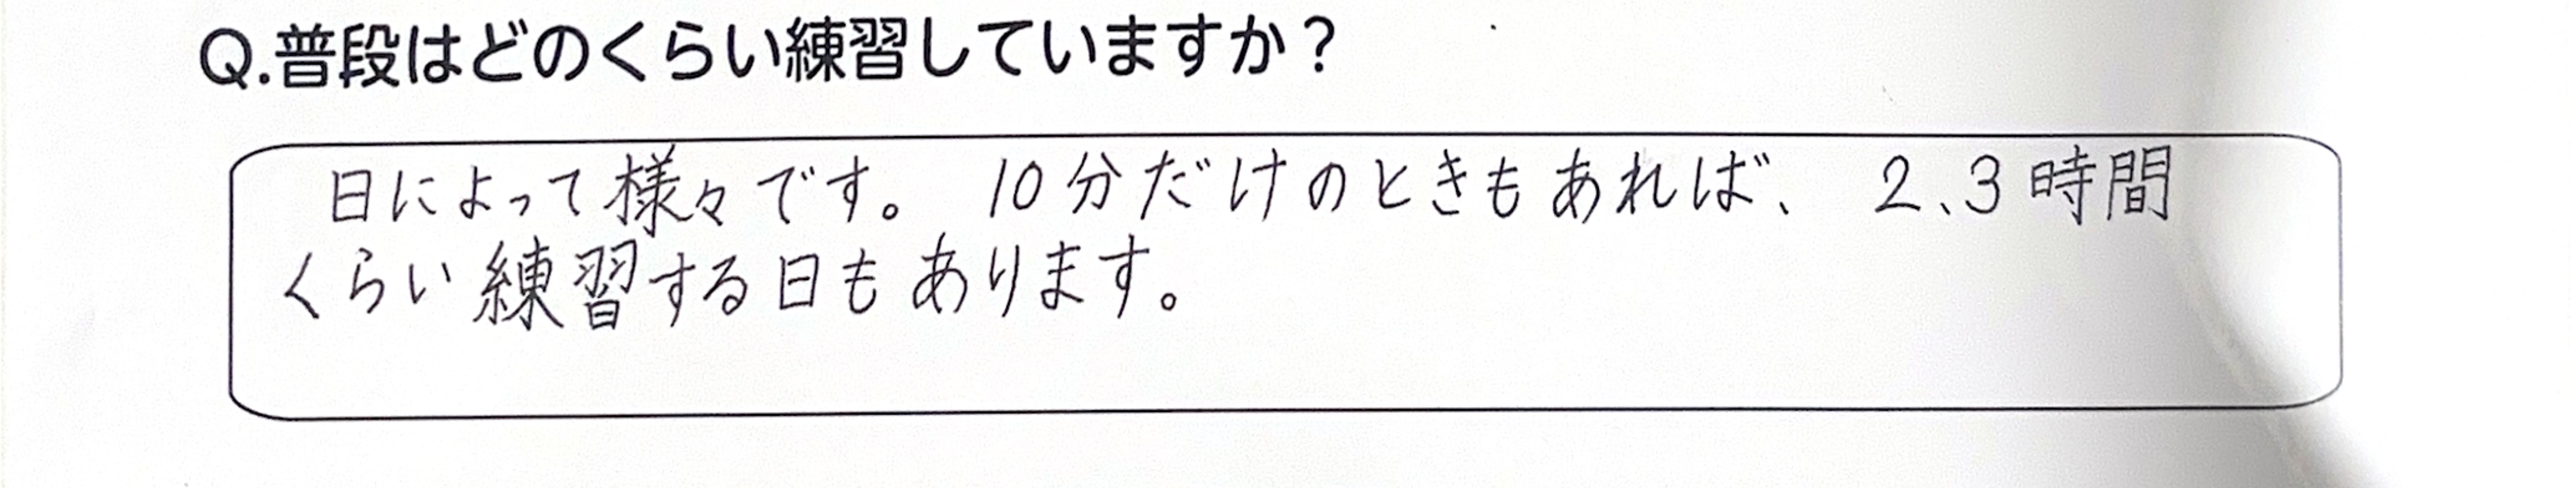 Q.普段はどのくらい練習していますか？
日によって様々です。 10分だけのときもあれば、 2、3時間
くらい練習する日もあります。